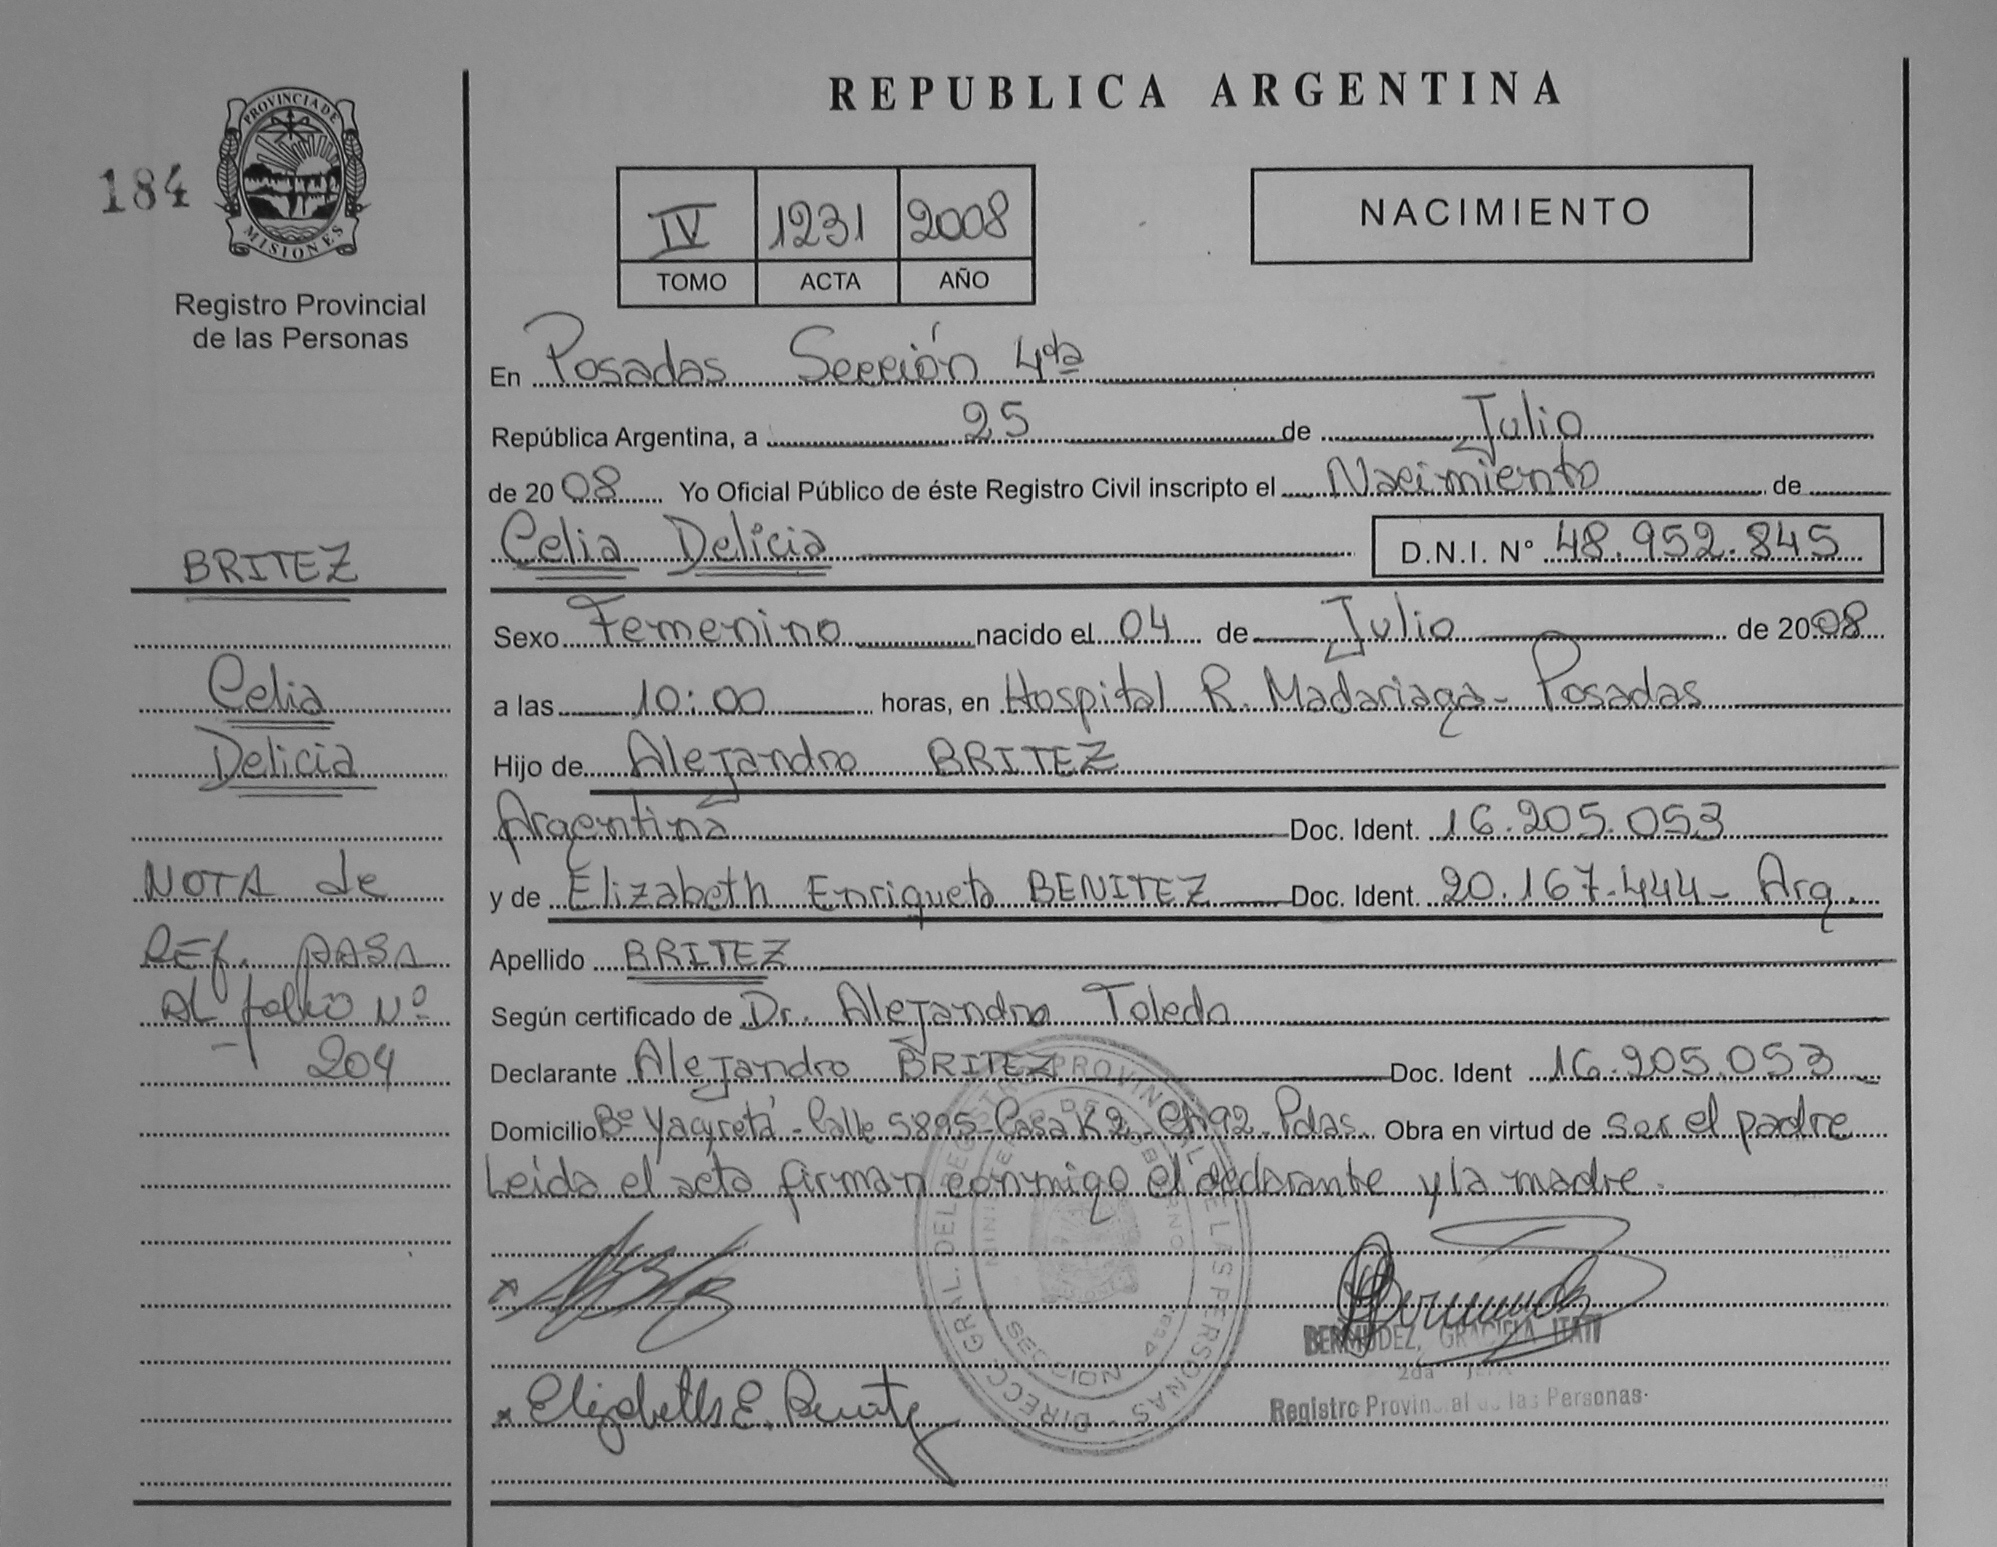 REPUBLICA ARGENTINA
184
PROVINCIA DE
MISIONES
Registro Provincial
de las Personas
IV 1231 2008
TOMO ACTA AÑO
NACIMIENTO
En Posadas Sección 4ta
República Argentina, a 25 de Julio
de 2008 Yo Oficial Público de éste Registro Civil inscripto el Nacimiento de
Celia Delicia D.N.I. N° 48.952.845
Sexo Femenino nacido el 04 de Julio de 2008
a las 10:00 horas, en Hospital R. Madariaga - Posadas
Hijo de Alejandro BRITEZ
Argentina Doc. Ident. 16.205.053
y de Elizabeth Enriqueta BENITEZ Doc. Ident. 20.167.444 - Arg.
Apellido BRITEZ
Según certificado de Dr. Alejandro Toledo
Declarante Alejandro BRITEZ Doc. Ident 16.205.053
Domicilio B° Yacyretá - Calle 5895 - Casa K2 - CH92 - Pdas. Obra en virtud de ser el padre
Leída el acta firman conmigo el declarante y la madre.
BRITEZ
Celia
Delicia
NOTA de
REF. PASA
AL folio N°
204
DIRECC. GRAL. DEL REGISTRO PROVINCIAL DE LAS PERSONAS
MISIONES
Elizabeth E. Benitez
BERMUDEZ, GRACIELA ITATI
2da Jefe
Registro Provincial de las Personas